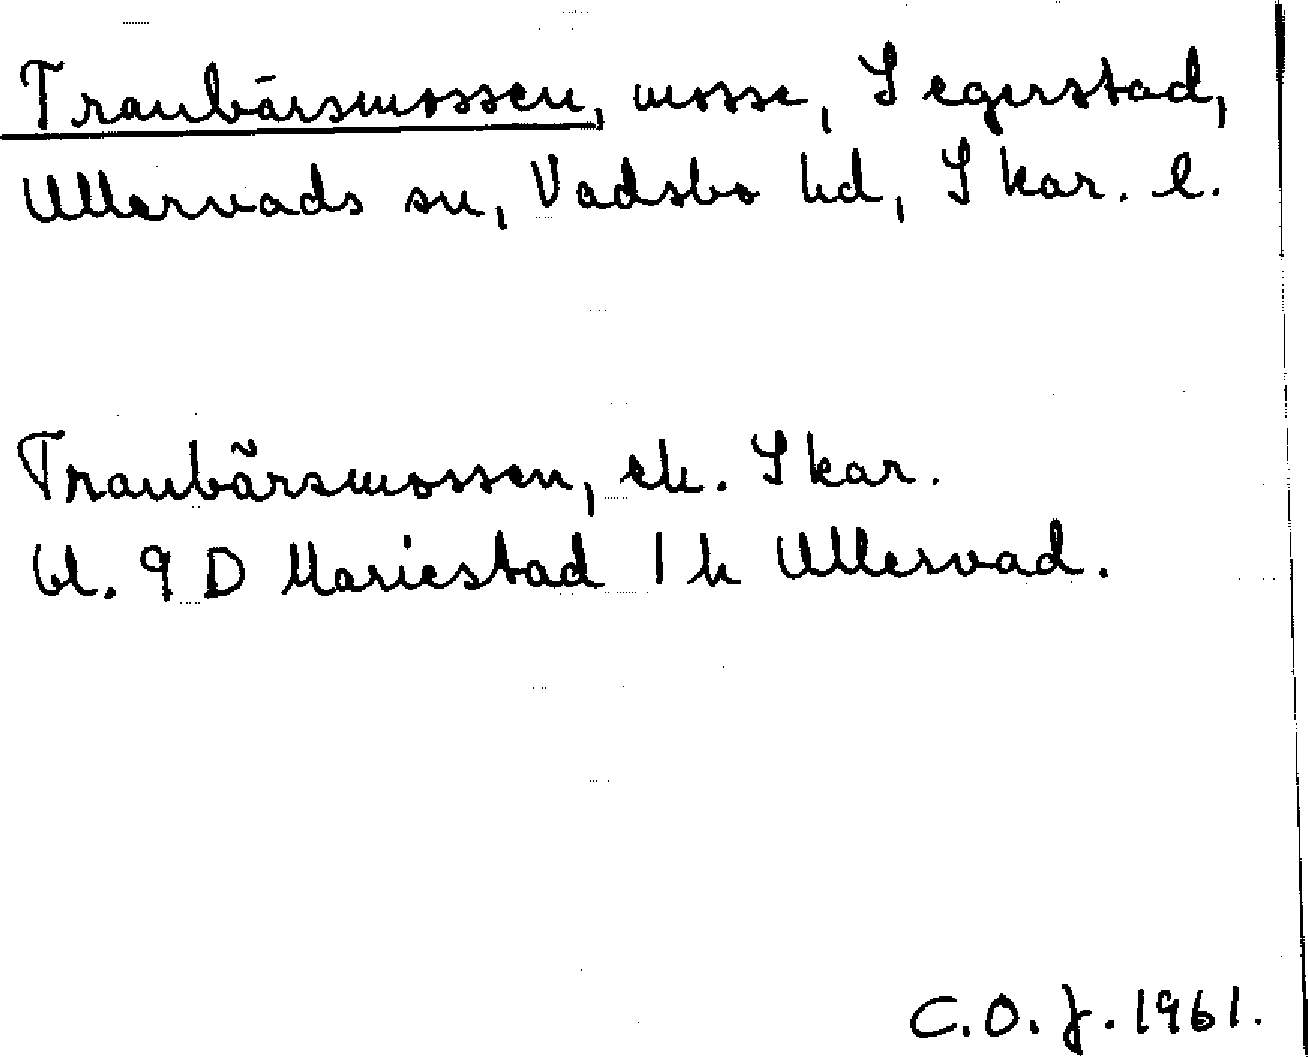 Tranbärsmossen, mosse, Segerstad,
Ullervads sn, Vadsbo hd, Skar. l.
Tranbärsmossen, ek. Skar.
bl. 9 D Mariestad 1 h Ullervad.
C.O.J. 1961.